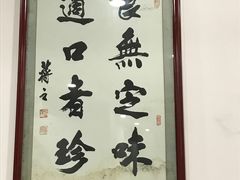 食無定味
適口者珍